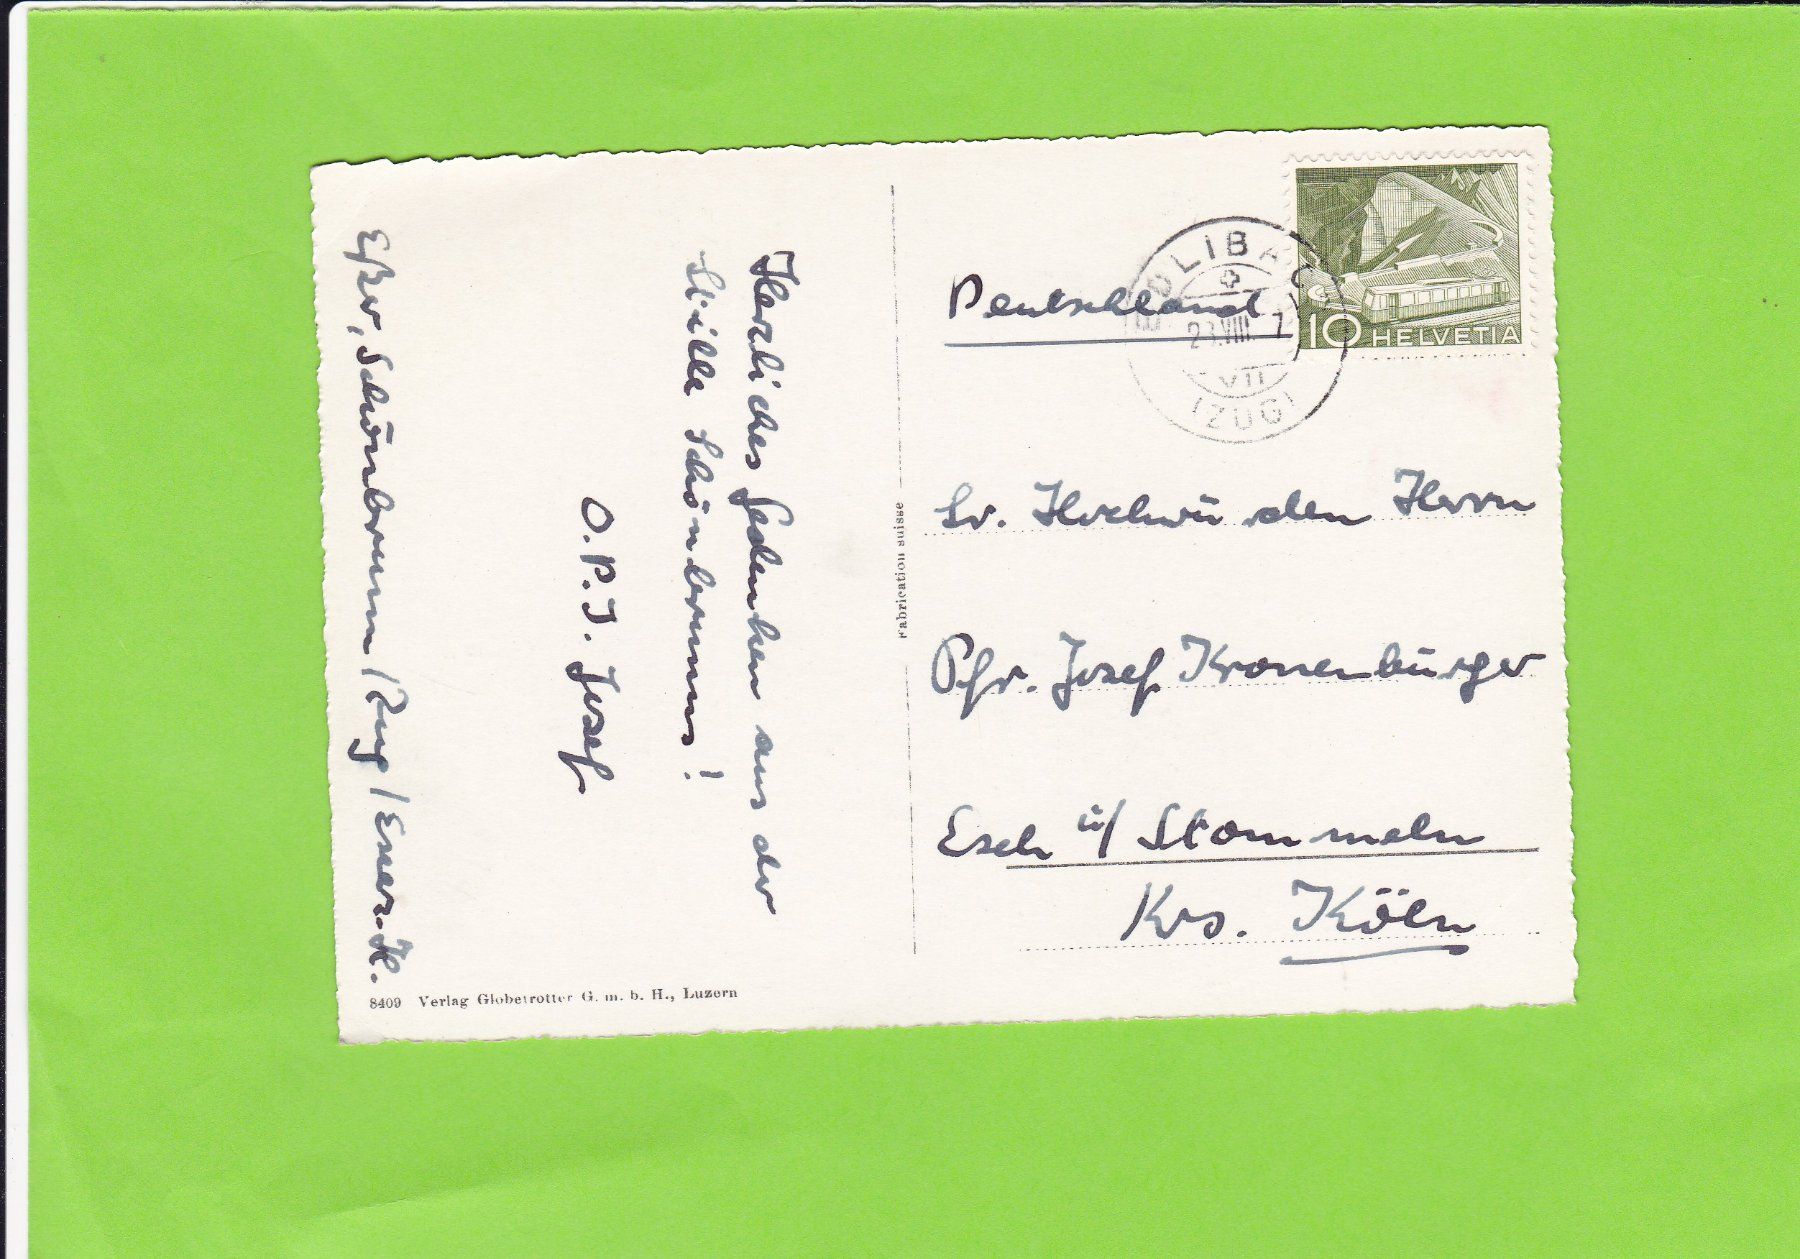 Herzliches Gedenken aus der
Stille Schönbrunns!
O.P.J. Josef
Schönbrunn / Zug /
8409 Verlag Globetrotter G. m. b. H., Luzern
Fabrication suisse
Deutschland
EDLIBACH
VIII
VII
(ZUG)
10 HELVETIA
Sr. Hochwürden Herrn
Pfr. Josef Kronenbürger
Esch ü/ Stommeln
Krs. Köln